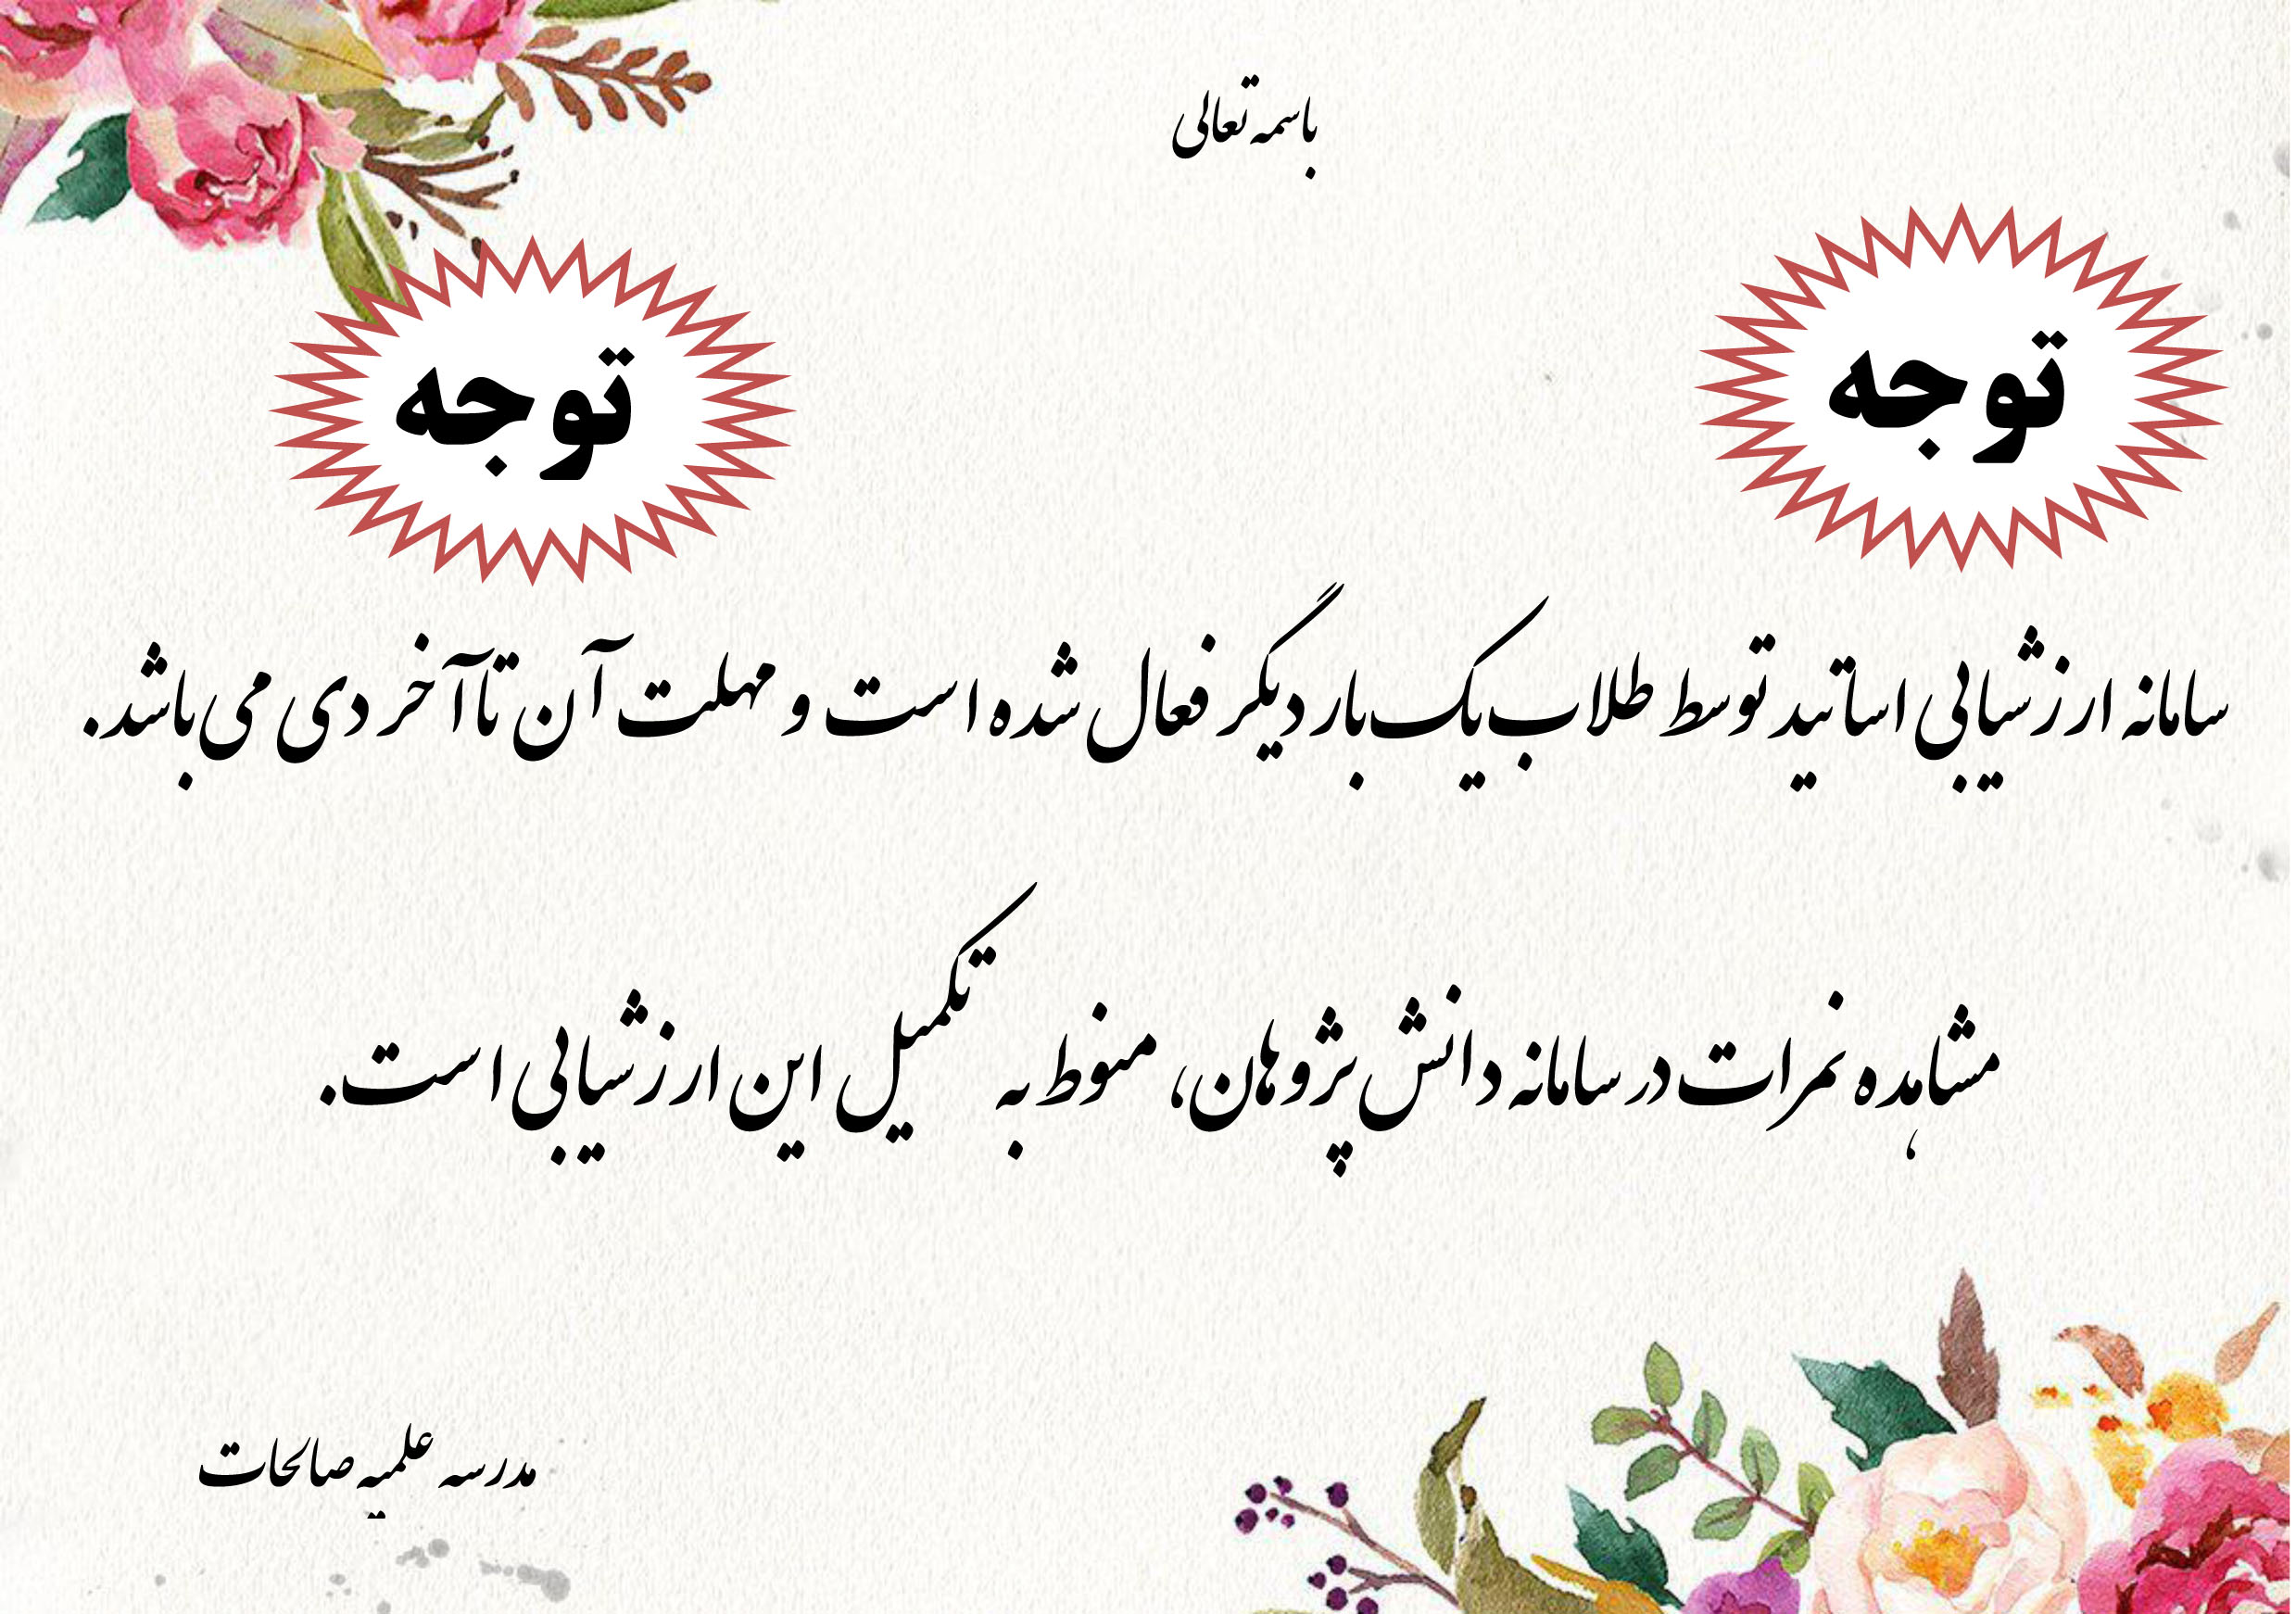 باسمه تعالی
توجه
توجه
سامانه ارزشیابی اساتید توسط طلاب یک بار دیگر فعال شده است و مهلت آن تا آخر دی می باشد.
مشاهده نمرات در سامانه دانش پژوهان، منوط به تکمیل این ارزشیابی است.
مدرسه علمیه صالحات